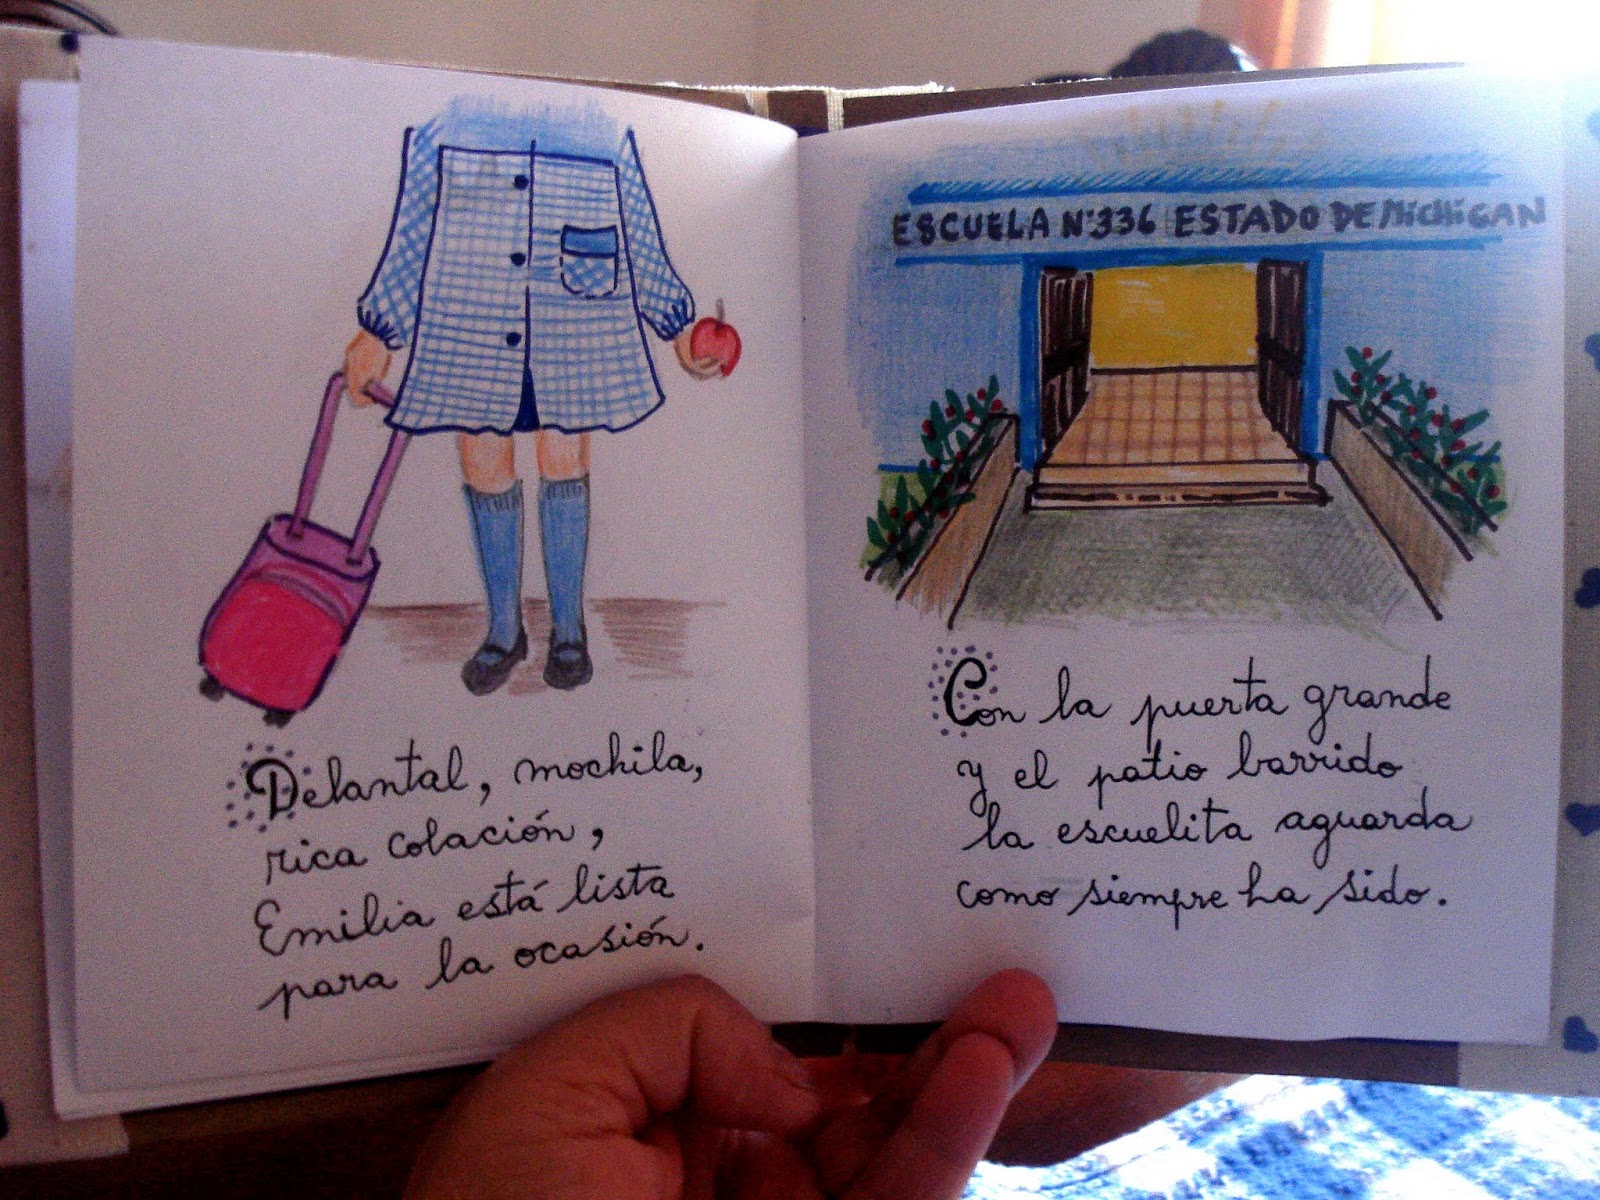 Delantal, mochila,
rica colación,
Emilia está lista
para la ocasión.
ESCUELA N°336 ESTADO DE MichiGAN
Con la puerta grande
y el patio barrido
la escuelita aguarda
como siempre ha sido.